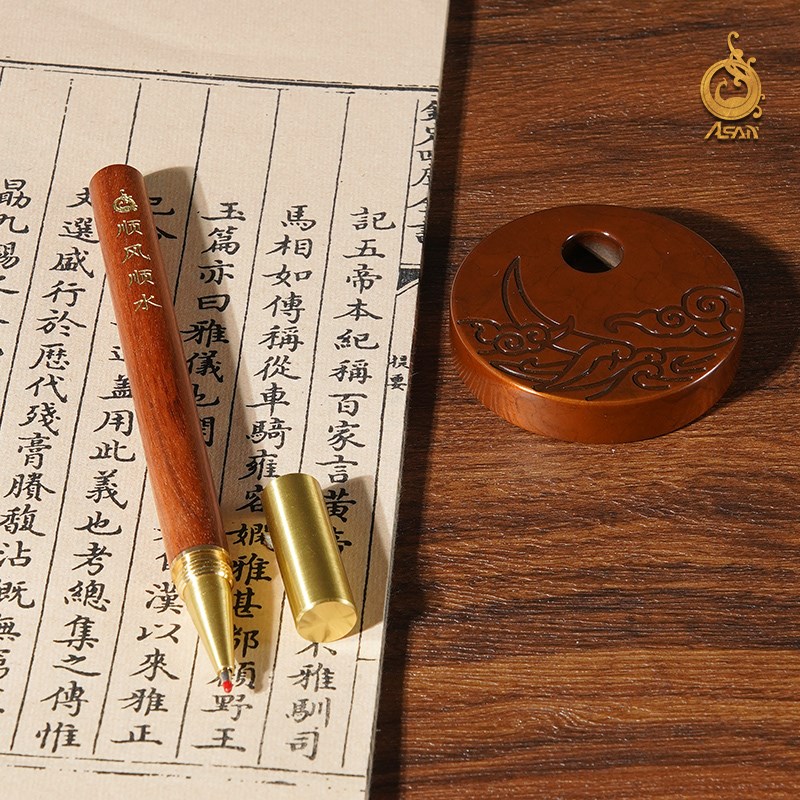 ASAN
顺风顺水
提要
記五帝本紀稱百家言黃
不雅馴司
馬相如傳稱從車騎雍容嫺雅甚都顧野王
玉篇亦曰雅儀也
漢以來雅正
盖用此義也考總集之傳惟
文選盛行於歷代殘膏賸馥沾溉無
九錫